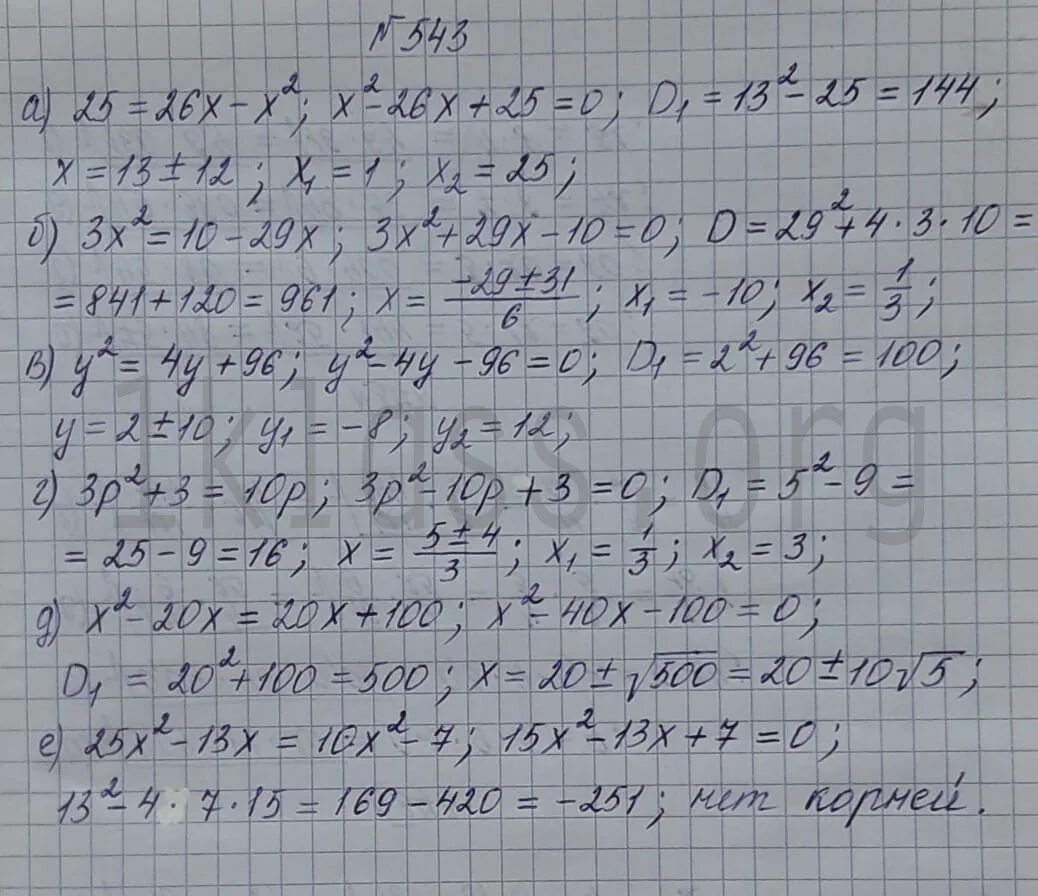 №543
а) 25 = 26x - x²; x² - 26x + 25 = 0; D₁ = 13² - 25 = 144;
x = 13 ± 12; x₁ = 1; x₂ = 25;
б) 3x² = 10 - 29x; 3x² + 29x - 10 = 0; D = 29² + 4 · 3 · 10 =
= 841 + 120 = 961; x = (-29 ± 31)/6; x₁ = -10; x₂ = 1/3;
в) y² = 4y + 96; y² - 4y - 96 = 0; D₁ = 2² + 96 = 100;
y = 2 ± 10; y₁ = -8; y₂ = 12;
1klass.org
г) 3p² + 3 = 10p; 3p² - 10p + 3 = 0; D₁ = 5² - 9 =
= 25 - 9 = 16; x = (5 ± 4)/3; x₁ = 1/3; x₂ = 3;
д) x² - 20x = 20x + 100; x² - 40x - 100 = 0;
D₁ = 20² + 100 = 500; x = 20 ± √500 = 20 ± 10√5;
е) 25x² - 13x = 10x² - 7; 15x² - 13x + 7 = 0;
13² - 4 · 7 · 15 = 169 - 420 = -251; нет корней.